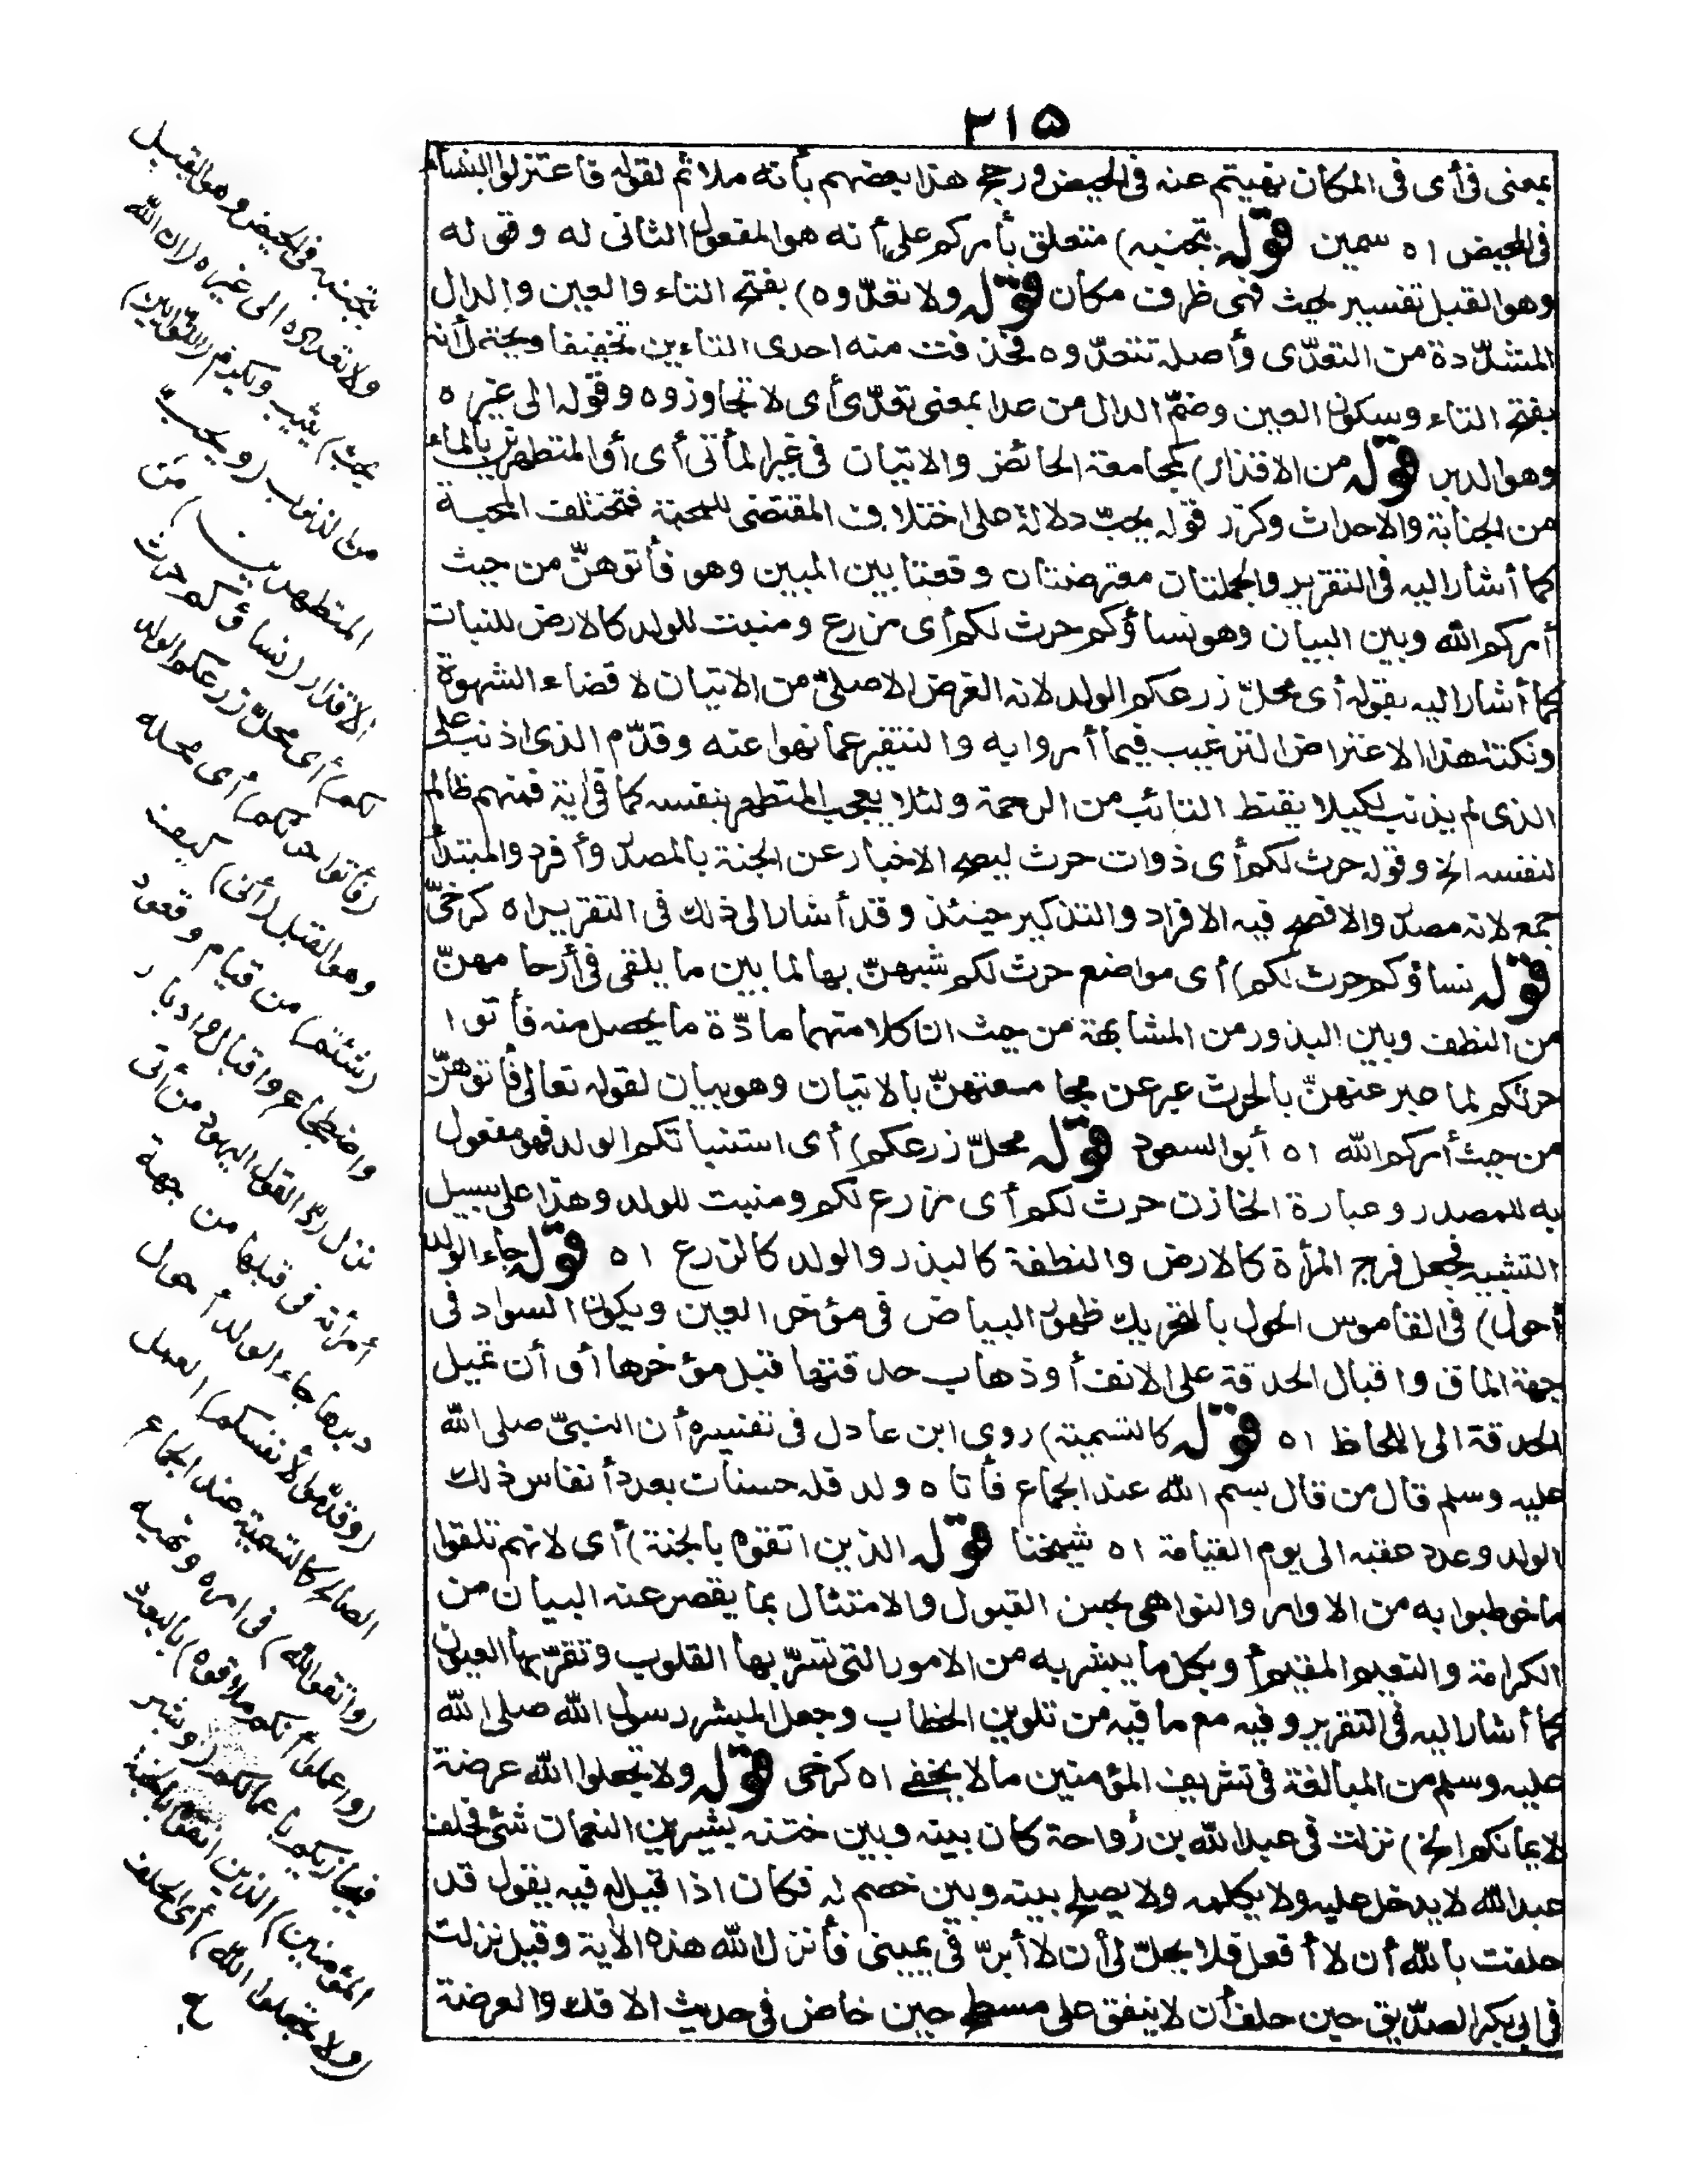 ٢١٥
بمعنى فى أى فى المكان نهيتم عنه فى الحيض ورجح هذا بعضهم بأنه ملائم لقوله فاعتزلوا النساء
فى المحيض اه سمين قوله بتجنبه) متعلق بأمركم على أنه هو المفعول الثانى له وقوله
وهو القبل تفسير لحيث فهى ظرف مكان قوله ولا تعدّوه) بفتح التاء والعين والدال
المشدّدة من التعدّى وأصله تتعدّوه فحذفت منه احدى التاءين تخفيفا ويحتمل أنه
بفتح التاء وسكون العين وضمّ الدال من عدا بمعنى تعدّى أى لا تجاوزوه وقوله الى غيره
وهو الدبر قوله من الاقذار) كمجامعة الحائض والاتيان فى غير المأتى أى أو المتطهرين بالماء
من الجنابة والاحداث وكرّر قوله يحبّ دلالة على اختلاف المقتضى للمحبة فتختلف المحبة
كما أشار اليه فى التقرير والجملتان معترضتان وقعتا بين المبين وهو فأتوهنّ من حيث
أمركم الله وبين البيان وهو نساؤكم حرث لكم أى مزرع ومنبت للولد كالارض للنبات
كما أشار اليه بقوله أى محلّ زرعكم الولد لانه الغرض الاصلىّ من الاتيان لا قضاء الشهوة
ونكتة هذا الاعتراض الترغيب فيما أمروا به والتنفير عما نهوا عنه وقدّم الذى اذنب على
الذى لم يذنب لكيلا يقنط التائب من الرحمة ولئلا يعجب المتطهر بنفسه كما فى اية فمنهم ظالم
لنفسه الخ وقوله حرث لكم أى ذوات حرث ليصح الاخبار عن الجثة بالمصدر وأفرد والمبتدأ
جمع لانه مصدر والافصح فيه الافراد والتذكير حينئذ وقد أشار الى ذلك فى التقرير اه كرخىّ
قوله نساؤكم حرث لكم) أى مواضع حرث لكم شبهنّ بها لما بين ما يلقى فى أرحامهنّ
من النطف وبين البذور من المشابهة من حيث ان كلا منهما مادّة ما يحصل منه فأتوا
حرثكم لما عبر عنهنّ بالحرث عبر عن مجامعتهنّ بالاتيان وهو بيان لقوله تعالى فأتوهنّ
من حيث أمركم الله اه أبو السعود قوله محلّ زرعكم) أى استنباتكم الولد فهو مفعول
به للمصدر وعبارة الخازن حرث لكم أى مزرع لكم ومنبت للولد وهذا على سبيل
التشبيه فجعل فرج المرأة كالارض والنطفة كالبذر والولد كالزرع اه قوله جاء الولد
أحول) فى القاموس الحول بالتحريك ظهور البياض فى مؤخر العين ويكون السواد فى
جهة الماق واقبال الحدقة على الانف أو ذهاب حدقتها قبل مؤخرها أو أن تميل
الحدقة الى اللحاظ اه قوله كالتسمية) روى ابن عادل فى تفسيره أن النبىّ صلى الله
عليه وسلم قال من قال بسم الله عند الجماع فأتاه ولد فله حسنات بعدد أنفاس ذلك
الولد وعدد عقبه الى يوم القيامة اه شيخنا قوله الذين اتقوه بالجنة) أى لانهم تلقوا
ما خوطبوا به من الاوامر والنواهى بحسن القبول والامتثال بما يقصر عنه البيان من
الكرامة والنعيم المقيم أو بكل ما يبشر به من الامور التى تسرّ بها القلوب وتقرّ بها العيون
كما أشار اليه فى التقرير وفيه مع ما فيه من تلوين الخطاب وجعل المبشر رسول الله صلى الله
عليه وسلم من المبالغة فى تشريف المؤمنين ما لا يخفى اه كرخى قوله ولا تجعلوا الله عرضة
لايمانكم الخ) نزلت فى عبد الله بن رواحة كان بينه وبين ختنه بشير بن النعمان شئ فحلف
عبد الله لا يدخل عليه ولا يكلمه ولا يصلح بينه وبين خصم له فكان اذا قيل له فيه يقول قد
حلفت بالله أن لا أفعل فلا يحلّ لى أن لا أبرّ فى يمينى فأنزل الله هذه الاية وقيل نزلت
فى ابى بكر الصدّيق حين حلف أن لا ينفق على مسطح حين خاض فى حديث الافك والعرضة
بتجنبه فى الحيض وهو القبل
ولا تعدوه الى غيره (ان الله
يحب) يثيب ويكرم (التوابين)
من الذنوب (ويحب
المتطهرين) من
الاقذار (نساؤكم حرث
لكم) أى محلّ زرعكم الولد
(فأتوا حرثكم) أى محله
وهو القبل (أنى) كيف
(شئتم) من قيام وقعود
واضطجاع واقبال وادبار
نزل ردّا لقول اليهود من أتى
امرأته فى قبلها من جهة
دبرها جاء الولد أحول
(وقدّموا لأنفسكم) العمل
الصالح كالتسمية عند الجماع
(واتقوا الله) فى امره ونهيه
(واعلموا أنكم ملاقوه) بالبعث
فيجازيكم باعمالكم (وبشر
المؤمنين) الذين اتقوه بالجنة
(ولا تجعلوا الله) أى الحلف